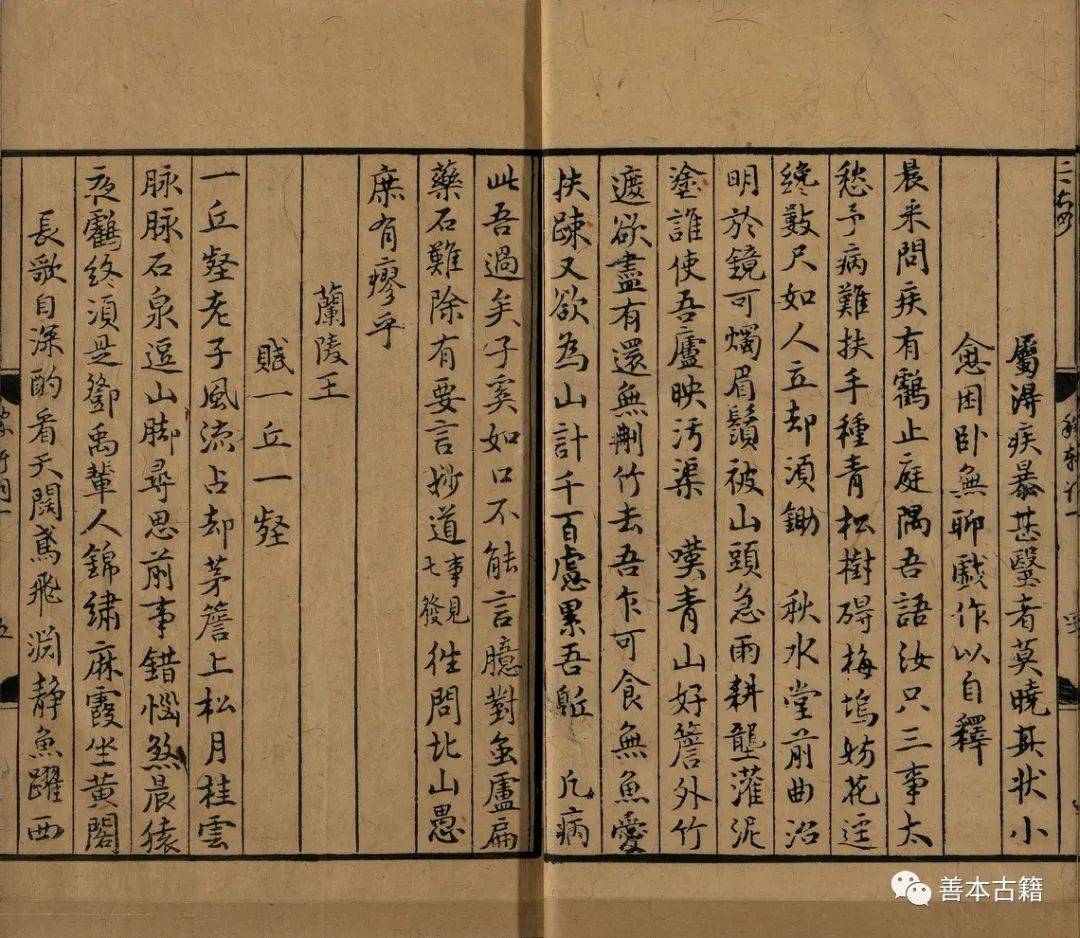 屬得疾暴甚醫者莫曉其状小
愈困卧無聊戯作以自釋
晨来問疾有鶴止庭隅吾語汝只三事太
愁予病難扶手種青松樹碍梅塢妨花逕
纔數尺如人立却湏鋤　秋水堂前曲沼
明於鏡可燭眉鬚被山頭急雨耕壟灌泥
塗誰使吾廬映汚渠　嘆青山好簷外竹
遮欲盡有還無刪竹去吾乍可食無魚愛
扶疎又欲為山計千百慮累吾軀　凡病
此吾過矣子奚如口不能言臆對雖盧扁
藥石難除有要言妙道事見七發徃問北山愚
庶有瘳乎
蘭陵王
賦一丘一壑
一丘壑老子風流占却茅簷上松月桂雲
脉脉石泉逗山脚尋思前事錯惱煞晨猿
夜鶴終湏是鄧禹輩人錦繡麻霞坐黄閣
長歌自深酌看天闊鳶飛淵静魚躍西
善本古籍